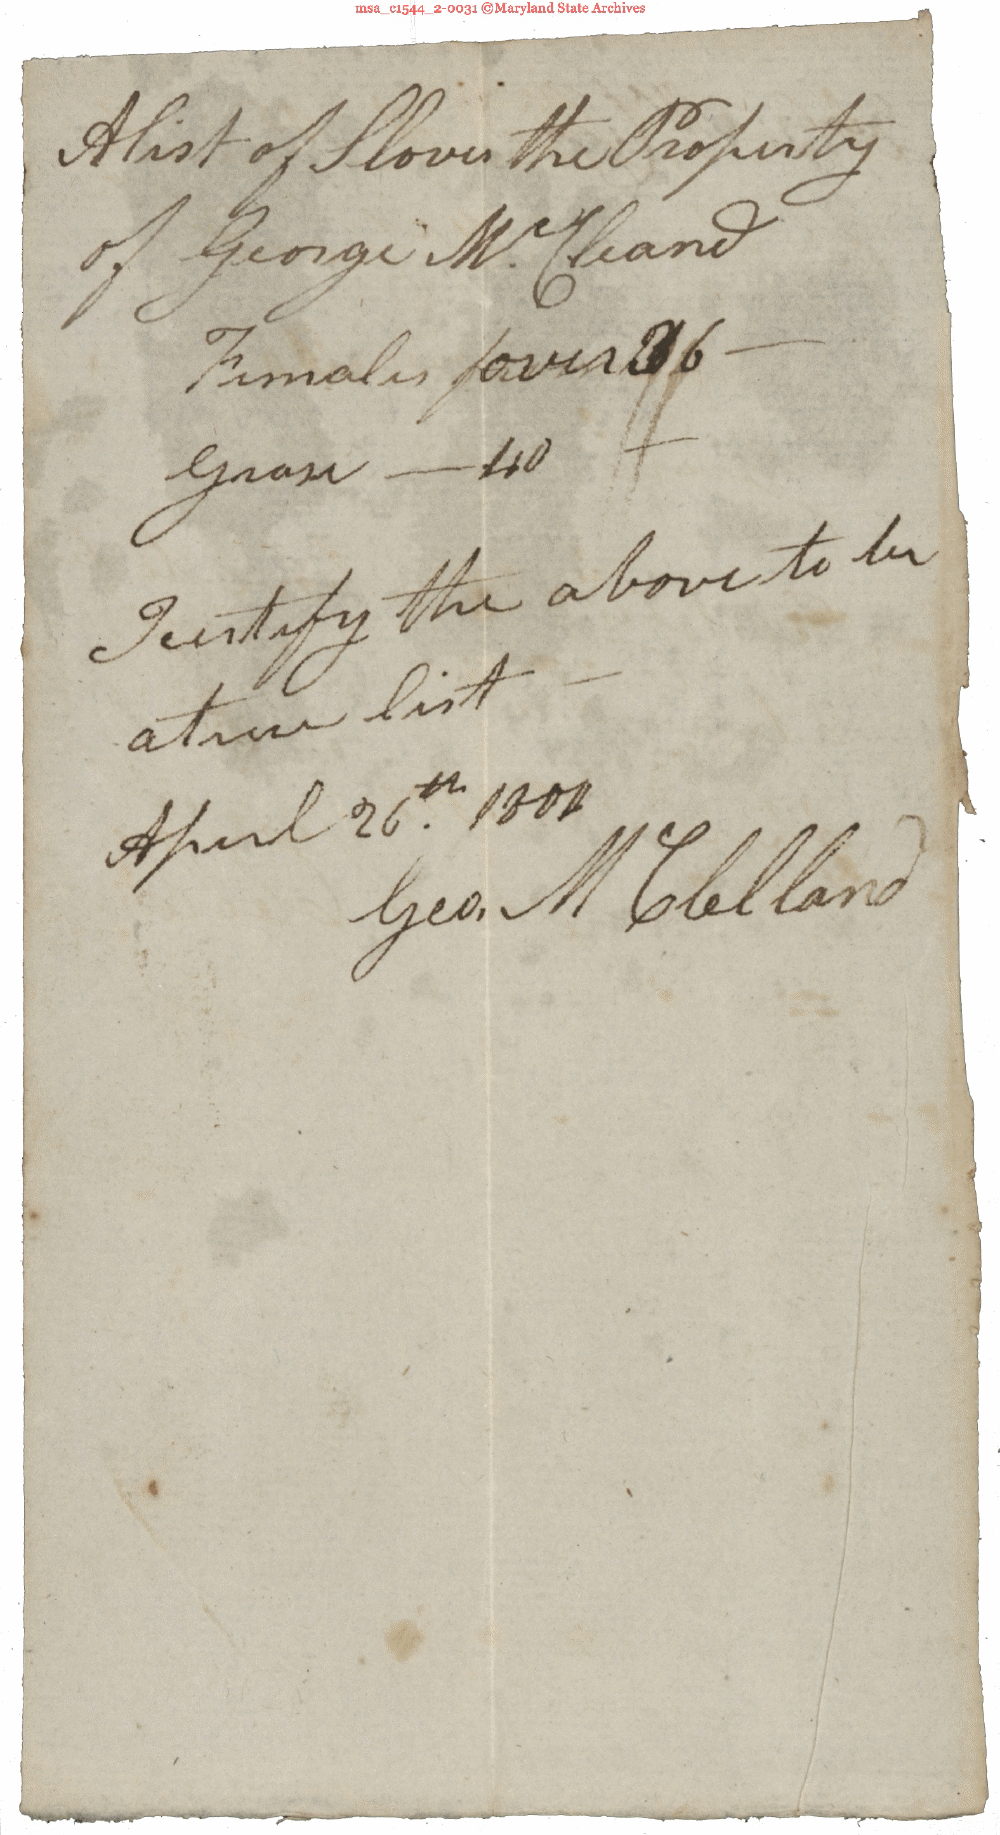 msa_c1544_2-0031 ©Maryland State Archives
A list of Slaves the Property
of George Mc. Cleand
Females over 36 —
Grase — 40
I certify the above to be
a true list —
April 26th. 1801
Geo. McClelland